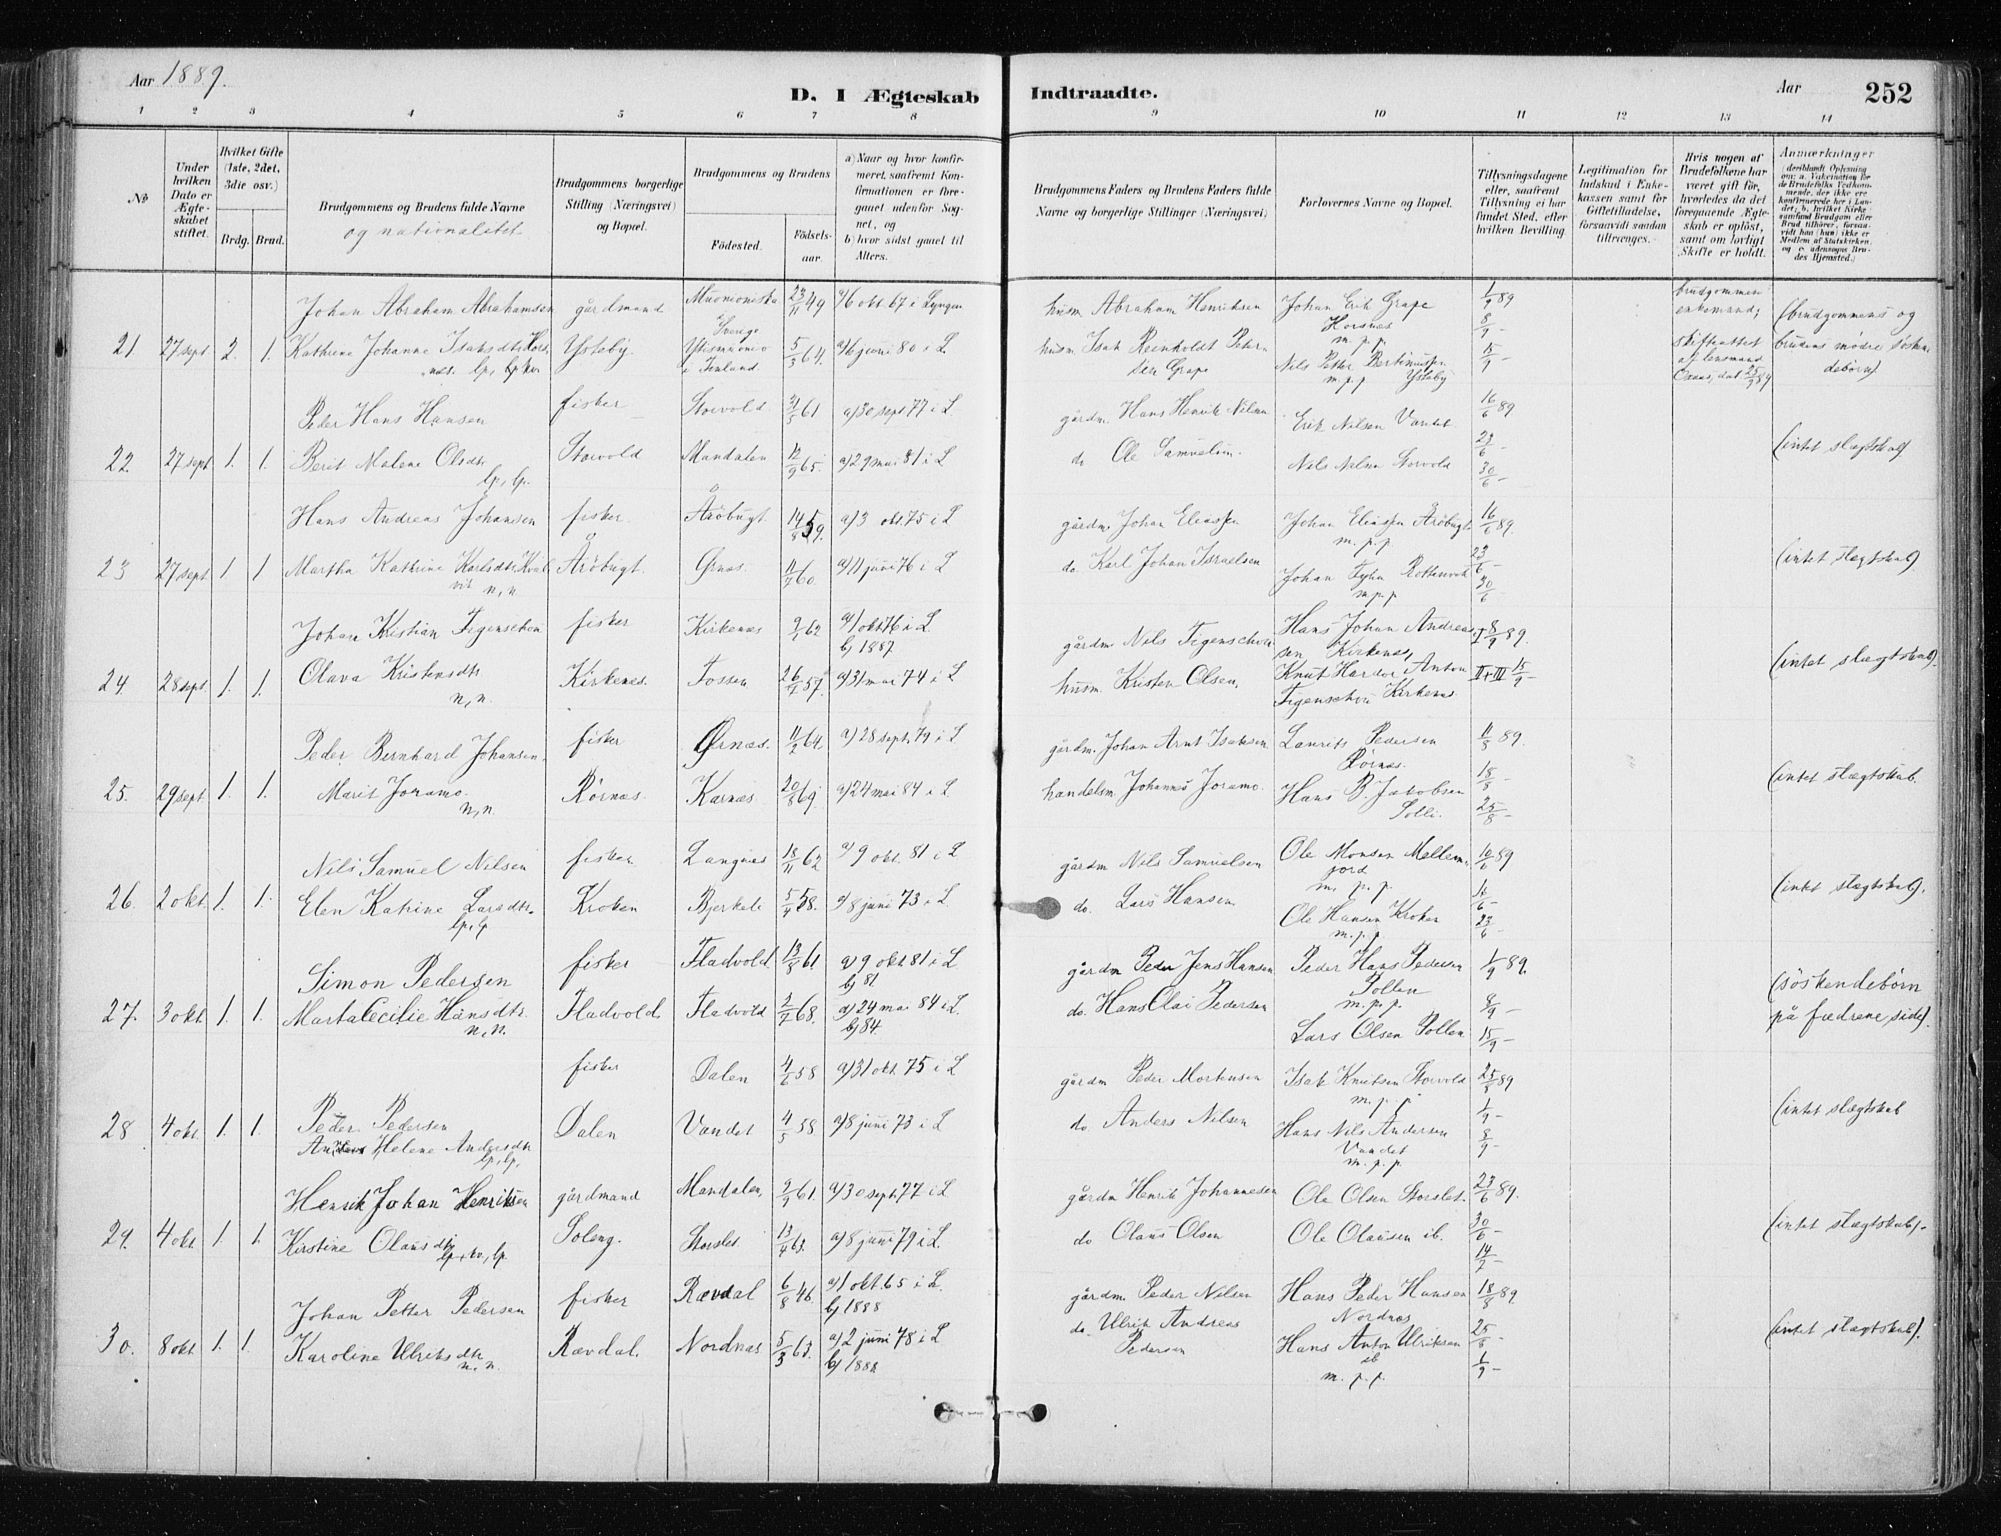 Aar 1889.
D. I Ægteskab Indtraadte.
Aar
252
1 2 3 4 5 6 7 8 9 10 11 12 13 14
No
Under hvilken Dato er Ægteskabet stiftet.
Hvilket Gifte (1ste, 2det, 3die osv.)
Brdg. Brud.
Brudgommens og Brudens fulde Navne
og nationalitet
Brudgommens borgerlige Stilling (Næringsvei) og Bopæl.
Brudgommens og Brudens
Fødested.
Fødselsaar.
a) Naar og hvor konfirmeret, saafremt Konfirmationen er foregaaet udenfor Sognet, og
b) hvor sidst gaaet til Alters.
Brudgommens Faders og Brudens Faders fulde Navne og borgerlige Stillinger (Næringsvei)
Forlovernes Navne og Bopæl.
Tillysningsdagene eller, saafremt Tillysning ei har fundet Sted, efter hvilken Bevilling
Legitimation for Indskud i Enkekassen samt for Giftetilladelse, forsaavidt saadan tiltrænges.
Hvis nogen af Brudefolkene har været gift før, hvorledes da det foregaaende Ægteskab er opløst, samt om lovligt Skifte er holdt.
Anmærkninger
Johan Abraham Abrahamsen gårdmand Muonioniska 23/11 49 a) 6 okt. 67 i Lyngen husm. Abraham Henriksen Johan Erik Grape Horsnes m.p.p. 1/9 89 brudgommen enkemand; (brudgommens og
21 27 sept 2. 1. Kathrine Johanne Isaksdtr. Ysteby. Sverge i Finland 5/3 64. a) 6 juni 80 i L. husm. Isak Reinholdt Grape Nils Petter m.p.p. Ysteby 8/9 – 15/9 – skifteattest af lensmand dat. 25/9 89 brudens mødre søskendebørn)
Peder Hans Hansen fisker Storvold 61 a) 30 sept 77 i L gårdm. Hans Henrik Nilsen Erik Nilsen Vandet 16/6 89
22. 27 sept. 1. 1. Berit Malene Olsdtr. lp, lp. Storvold Mandalen 12/9 65. a) 29 mai 81 i L do Ole Samuelsen. Nils Nilsen Storvold 23/6 – 30/6 – (intet slægtskab)
Hans Andreas Johansen fisker. Årøbugt 14/8 59. a) 3 okt. 75 i L gårdm. Johan Eliassen Johan Eliassen Årøbugt m.p.p. 16/6 89.
23 27 sept 1 1 Martha Kathrine Karlsdtr. n, n Årøbugt. Ørnes. 60 a) 11 juni 76 i L do. Karl Johan Israelsen Johan m.p.p 23/6 – 30/6 – (intet slægtskab)
Johan Kristian Figenschou fisker Kirkenes 62 a) 1 okt 76 i L b) 1887 gårdm Nils Figenschou Hans Johan Andreassen Kirkenes, I 8/9 89.
24. 28 sept. 1. 1. Olava Kristensdtr n, n. Kirkenes. Fossen 57. a) 31 mai 74 i L husm. Kristen Olsen, Knut Anton Figenschou Kirkenes II+III 15/9 – (intet slægtskab).
Peder Bernhard Johansen. fisker Ørnæs. 11/2 64. a) 28 sept. 79 i L gårdm. Johan Arnt Isaksen Laurits Pedersen Rørnæs. 11/8 89.
25. 29 sept. 1. 1. Marit Joramo. n, n. Rørnæs. Karnes. 20/8 69. a) 24 mai 84 i L. handelsm. Johannes Joramo. Hans B. Jakobsen Solli. 18/8 – 25/8 – (intet slægtskab.
Nils Samuel Nilsen fisker Langnes 18/11 62 a) 9 okt. 81 i L gårdm Nils Samuelsen Ole Monsen m.p.p. 89
26. 2 okt. 1. 1. Elen Katrine Larsdtr. lp, lp Kroken Bjerkeli 58. a) 8 juni 73 i L. do. Lars Hansen Ole Hansen Kroken m.p.p 16/6 – 23/6 – (intet slægtskab).
Simon Pedersen fisker Fladvold 13/8 61 a) 9 okt 81 i L b) 81 gårdm Peder Jens Hansen Peder Hans Pedersen Pollen m.p.p. 1/9 89. (søskendebørn
27. 3 okt. 1. 1. Marta Cecilie Hansdtr. n. n. Fladvold. Fladvold 68. a) 24 mai 84 i L. b) 84. do. Hans Olai Pedersen Lars Olsen Pollen 8/9 – 15/9 – på fædrene side).
Peder Pedersen fisker Dalen 4/6 58 a) 31 okt. 75 i L gårdm Peder Mortensen Isak Knutsen Storvold m.p.p. 25/8 89
28 4 okt. 1. 1. Helene Andersdtr lp, lp, Dalen Vandet 4/5 58 a) 8 juni 73 i L do. Anders Nilsen Hans Nils Andersen Vandet m.p.p. 1/9 – 8/9 – (intet slægtskab
Henrik Johan Henriksen gårdmand Mandalen, 61. a) 30 sept. 77 i L gårdm Henrik Johannesen Ole Olsen Storslet. 23/6 89.
29. 4 okt 1. 1. Kirstine Olausdtr lp, kv, lp. Soleng. Storslet 13/4 63. a) 8 juni 79 i L. do Olaus Olsen Ole Olausen ib. 30/6 – 14/7 – (intet slægtskab).
Johan Petter Pedersen fisker Rævdal 6/8 46. a) 1 okt. 65 i L. b) 1888 gårdm. Peder Nilsen Hans Peder Hansen Nordnæs 18/8 89.
30. 8 okt 1. 1. Karoline Ulriksdtr n. n. Rævdal. Nordnæs 5/3 63. a) 2 juni 78 i L b) 1888 do. Ulrik Andreas Pedersen Hans Anton Ulriksen ib m.p.p. 25/8 – 1/9 – (intet slægtskab).